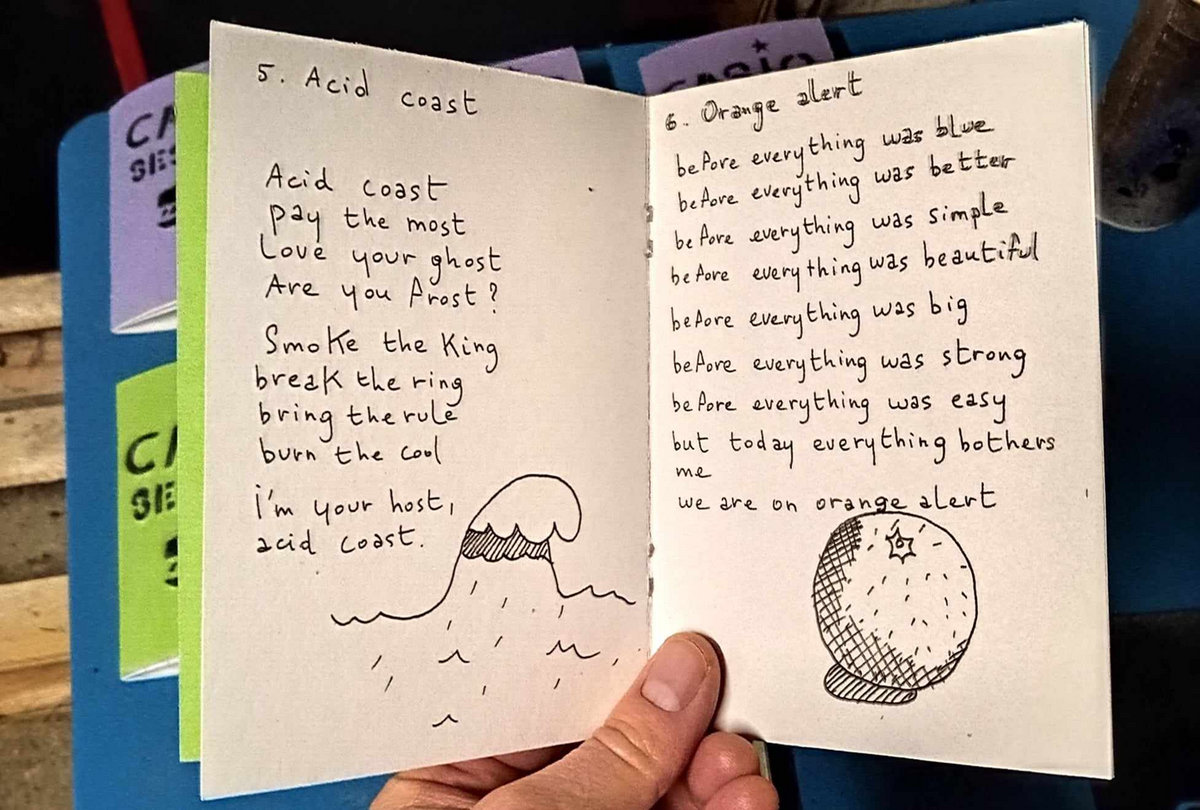 CASIO
5. Acid coast
Acid coast
pay the most
Love your ghost
Are you frost?
Smoke the King
break the ring
bring the rule
burn the cool
i'm your host,
acid coast.
6. Orange alert
before everything was blue
before everything was better
before everything was simple
before everything was beautiful
before everything was big
before everything was strong
before everything was easy
but today everything bothers
me
we are on orange alert